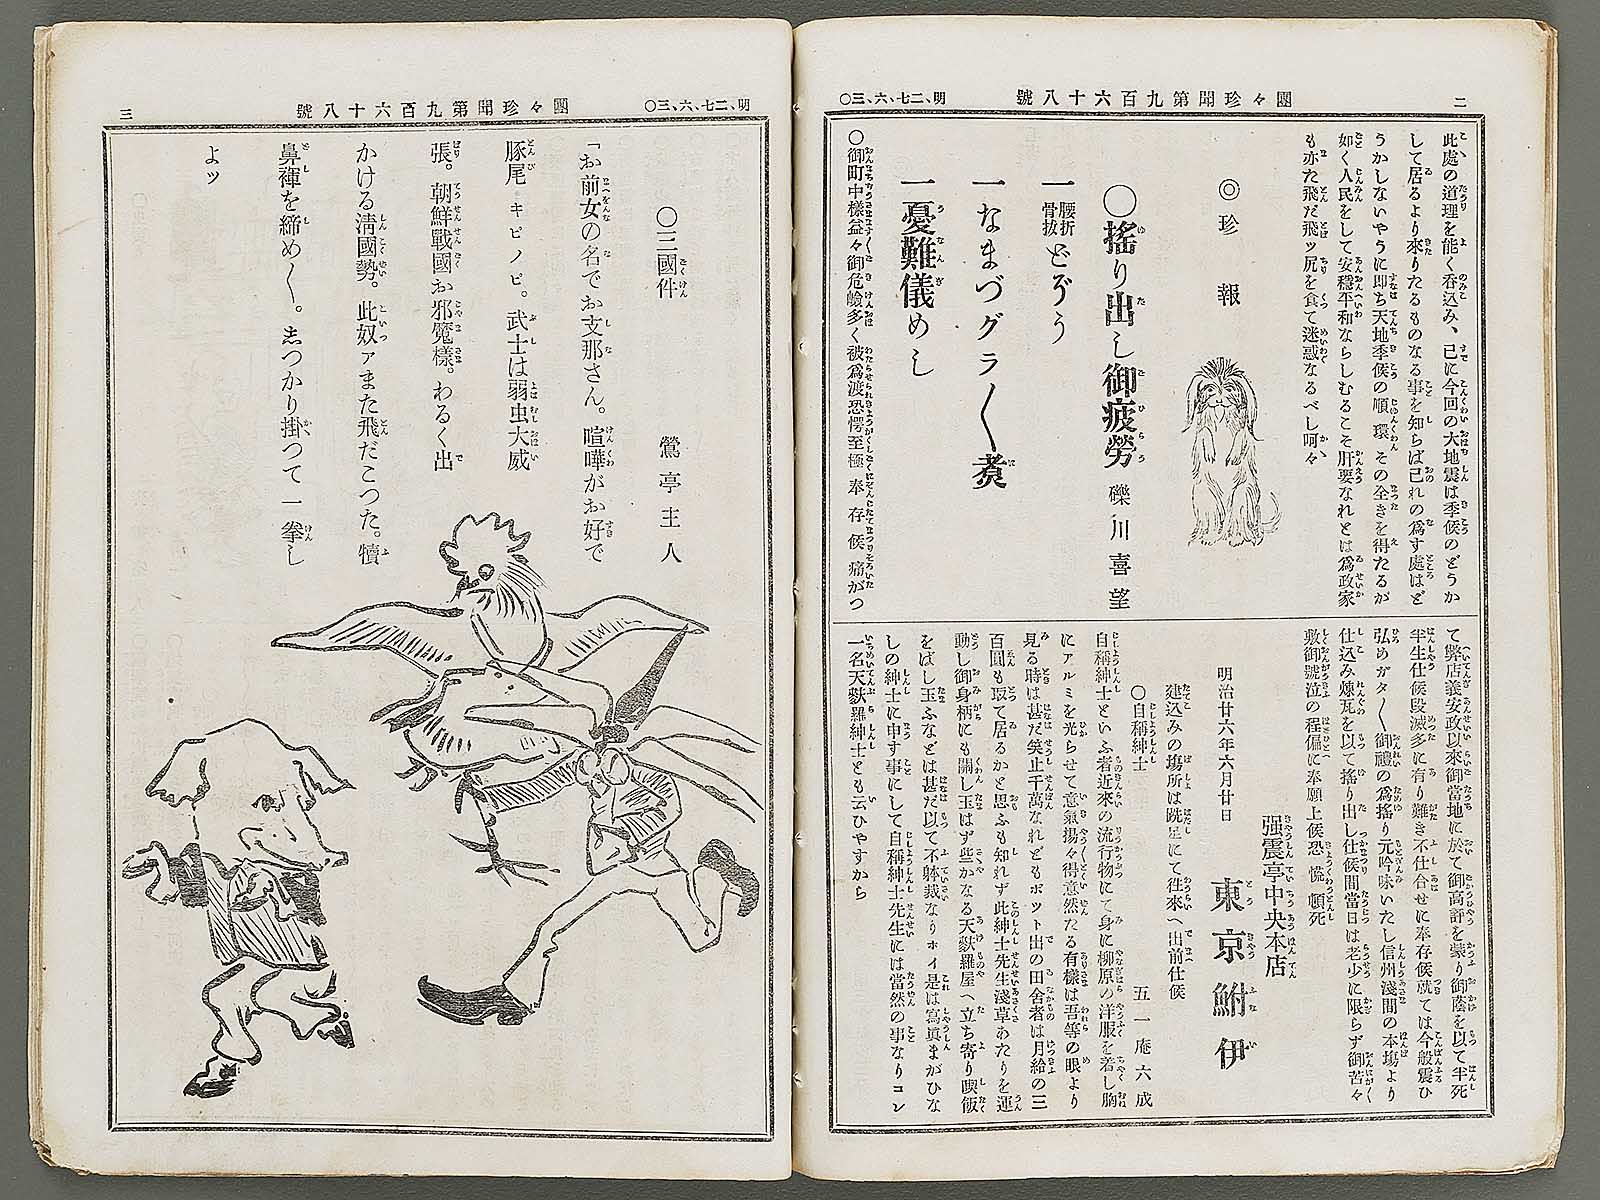 二
團々珍聞第九百六十八號
明、二七、六、三〇
此處の道理を能く呑込み、已に今回の大地震は季候のどうか
して居るより來りたるものなる事を知らば己れの爲す處はど
うかしないやうに即ち天地季候の順環その全きを得たるが
如く人民をして安穩平和ならしむるこそ肝要なれとは爲政家
も亦た飛だ飛ッ尻を食て迷惑なるべし呵々
◎珍報
○搖り出し御疲勞
礫川喜望
一腰折骨拔どぞう
一なまづグラ〱煮
一憂難儀めし
○御町中樣益々御危嶮多く被爲渡恐愕至極奉存候痛がつ
て弊店義安政以來御當地に於て御高評を蒙り御蔭を以て半死
半生仕候段滅多に有り難き不仕合せに奉存候就ては今般震ひ
弘めガタ〱御禮の爲搖り元吟味いたし信州淺間の本塲より
仕込み煉瓦を以て搖り出し仕候間當日は老少に限らず御苦々
敷御號泣の程偏に奉願上候恐慌頓死
强震亭中央本店
明治廿六年六月廿日
東京鮒伊
建込みの塲所は跣足にて徃來へ出前仕候
○自稱紳士
五一庵六成
自稱紳士といふ者近來の流行物にて身に柳原の洋服を着し胸
にアルミを光らせて意氣揚々得意然たる有樣は吾等の眼より
見る時は甚だ笑止千萬なれどもポット出の田舍者は月給の三
百圓も取て居るかと思ふも知れず此紳士先生淺草あたりを運
動し御身柄にも關し玉はず些かなる天麩羅屋へ立ち寄り喫飯
をばし玉ふなどは甚だ以て不躰裁なりホイ是は寫眞まがひな
しの紳士に申す事にして自稱紳士先生には當然の事なりコン
一名天麩羅紳士とも云ひやすから
三
團々珍聞第九百六十八號
明、二七、六、三〇
○三國件
鶯亭主人
「お前女の名でお支那さん。喧嘩がお好で
豚尾キピノピ。武士は弱虫大威
張。朝鮮戰國お邪魔樣。わるく出
かける淸國勢。此奴ァまた飛だこつた。犢
鼻褌を締め〱。志つかり掛つて一拳し
よッ